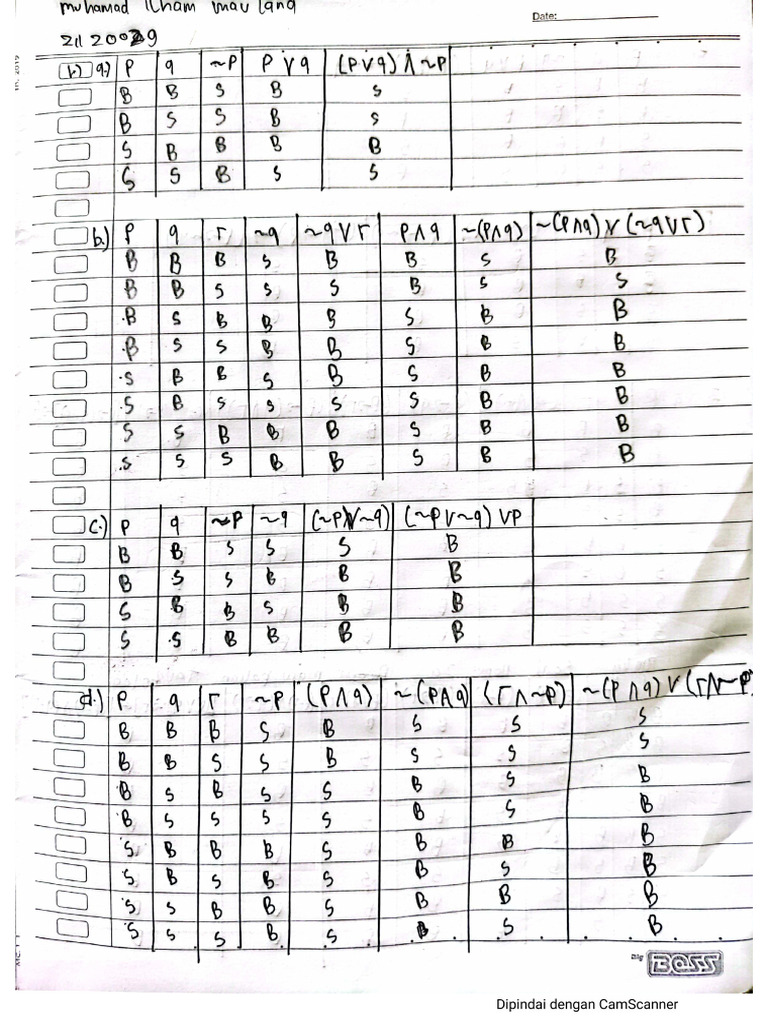 muhamad ilham maulana
Date:
21120029
1.) a.) P q ~P P ∨ q (P ∨ q) ∧ ~P
B B S B S
B S S B S
S B B B B
S S B S S
b.) P q r ~q ~q ∨ r P ∧ q ~(P ∧ q) ~(P ∧ q) ∨ (~q ∨ r)
B B B S B B S B
B B S S S B S S
B S B B B S B B
B S S B B S B B
S B B S B S B B
S B S S S S B B
S S B B B S B B
S S S B B S B B
c.) P q ~P ~q (~P ∨ ~q) (~P ∨ ~q) ∨ P
B B S S S B
B S S B B B
S B B S B B
S S B B B B
d.) P q r ~P (P ∧ q) ~(P ∧ q) (r ∧ ~P) ~(P ∧ q) ∨ (r ∧ ~P)
B B B S B S S S
B B S S B S S S
B S B S S B S B
B S S S S B S B
S B B B S B B B
S B S B S B S B
S S B B S B B B
S S S B S B S B
BOSS
Dipindai dengan CamScanner